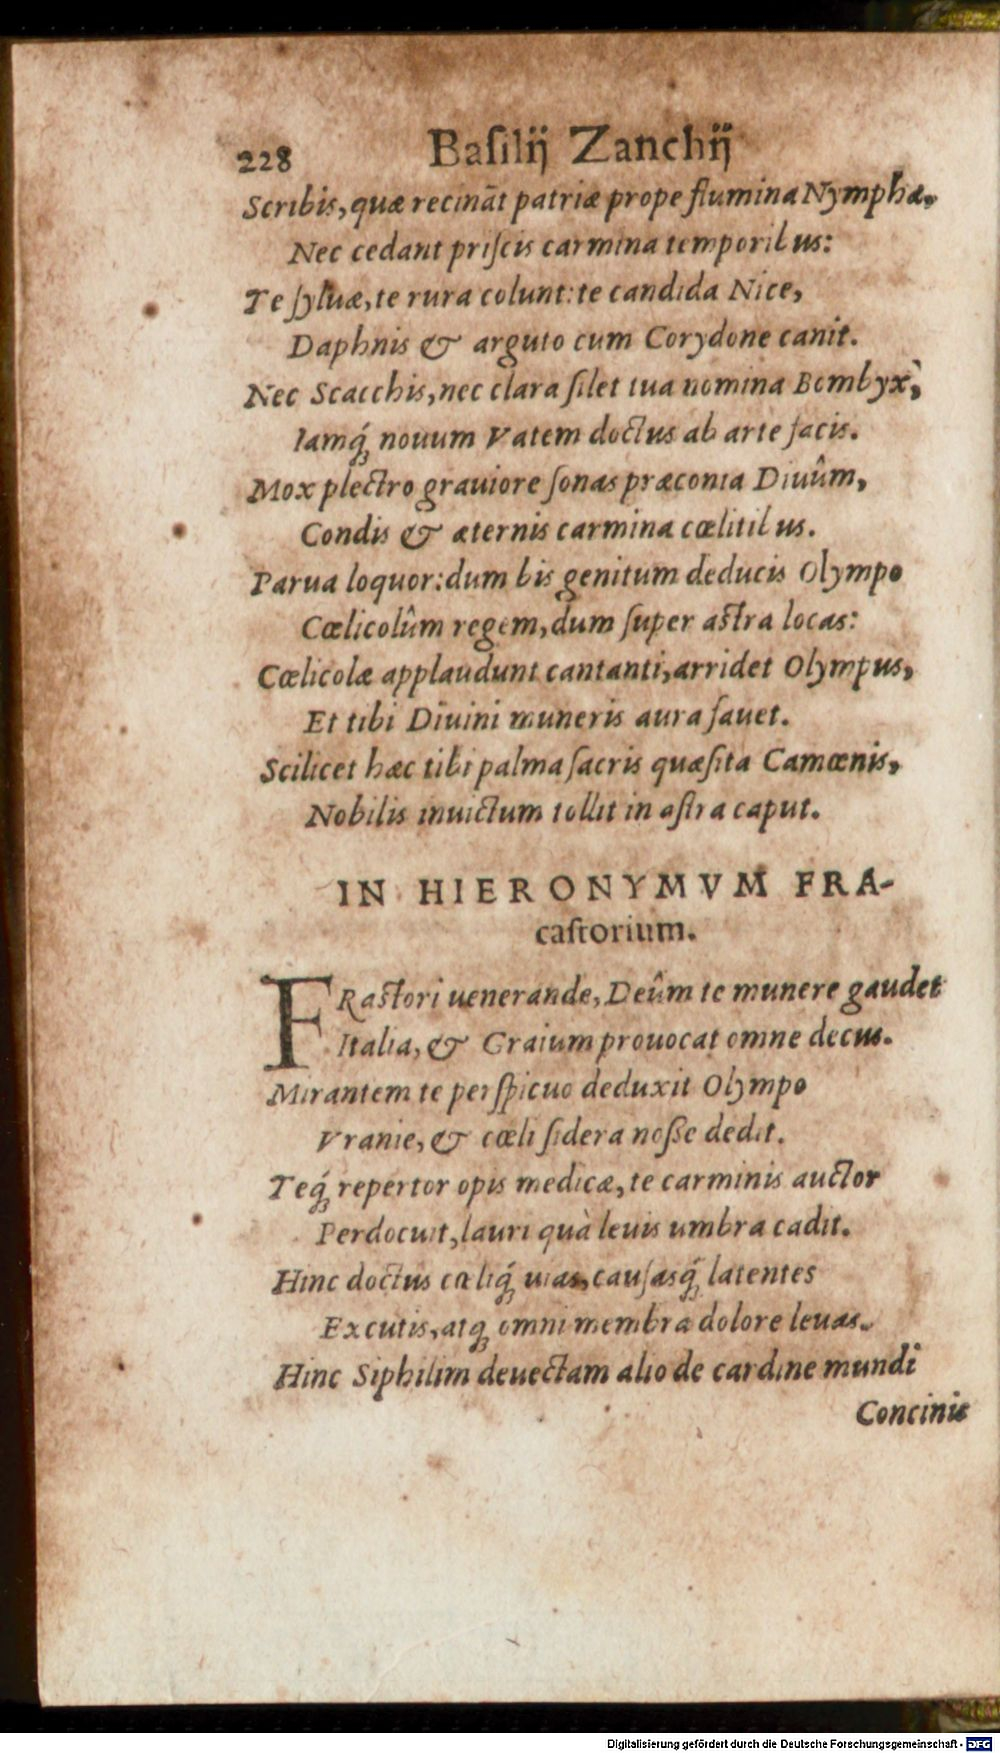 228 Baſilij Zanchij
Scribis, quæ recināt patriæ prope flumina Nymphæ.
Nec cedant priſcis carmina temporibus:
Te ſyluæ, te rura colunt: te candida Nice,
Daphnis & arguto cum Corydone canit.
Nec Scacchis, nec clara ſilet tua nomina Bombyx,
Iamq́; nouum Vatem doctus ab arte facis.
Mox plectro grauiore ſonas præconia Diuûm,
Condis & æternis carmina cœlitibus.
Parua loquor: dum bis genitum deducis Olympo
Cœlicolûm regem, dum ſuper aſtra locas:
Cœlicolæ applaudunt cantanti, arridet Olympus,
Et tibi Diuini muneris aura fauet.
Scilicet hæc tibi palma ſacris quæſita Camœnis,
Nobilis inuictum tollit in aſtra caput.
IN HIERONYMVM FRA-
caſtorium.
FRaſtori uenerande, Deûm te munere gaudet
Italia, & Graium prouocat omne decus.
Mirantem te perſpicuo deduxit Olympo
Vranie, & cœli ſidera noſſe dedit.
Teq́; repertor opis medicæ, te carminis auctor
Perdocuit, lauri quà leuis umbra cadit.
Hinc doctus cæliq́; uias, cauſasq́; latentes
Excutis, atq; omni membra dolore leuas.
Hinc Siphilim deuectam alio de cardine mundi
Concinis
Digitalisierung gefördert durch die Deutsche Forschungsgemeinschaft - DFG